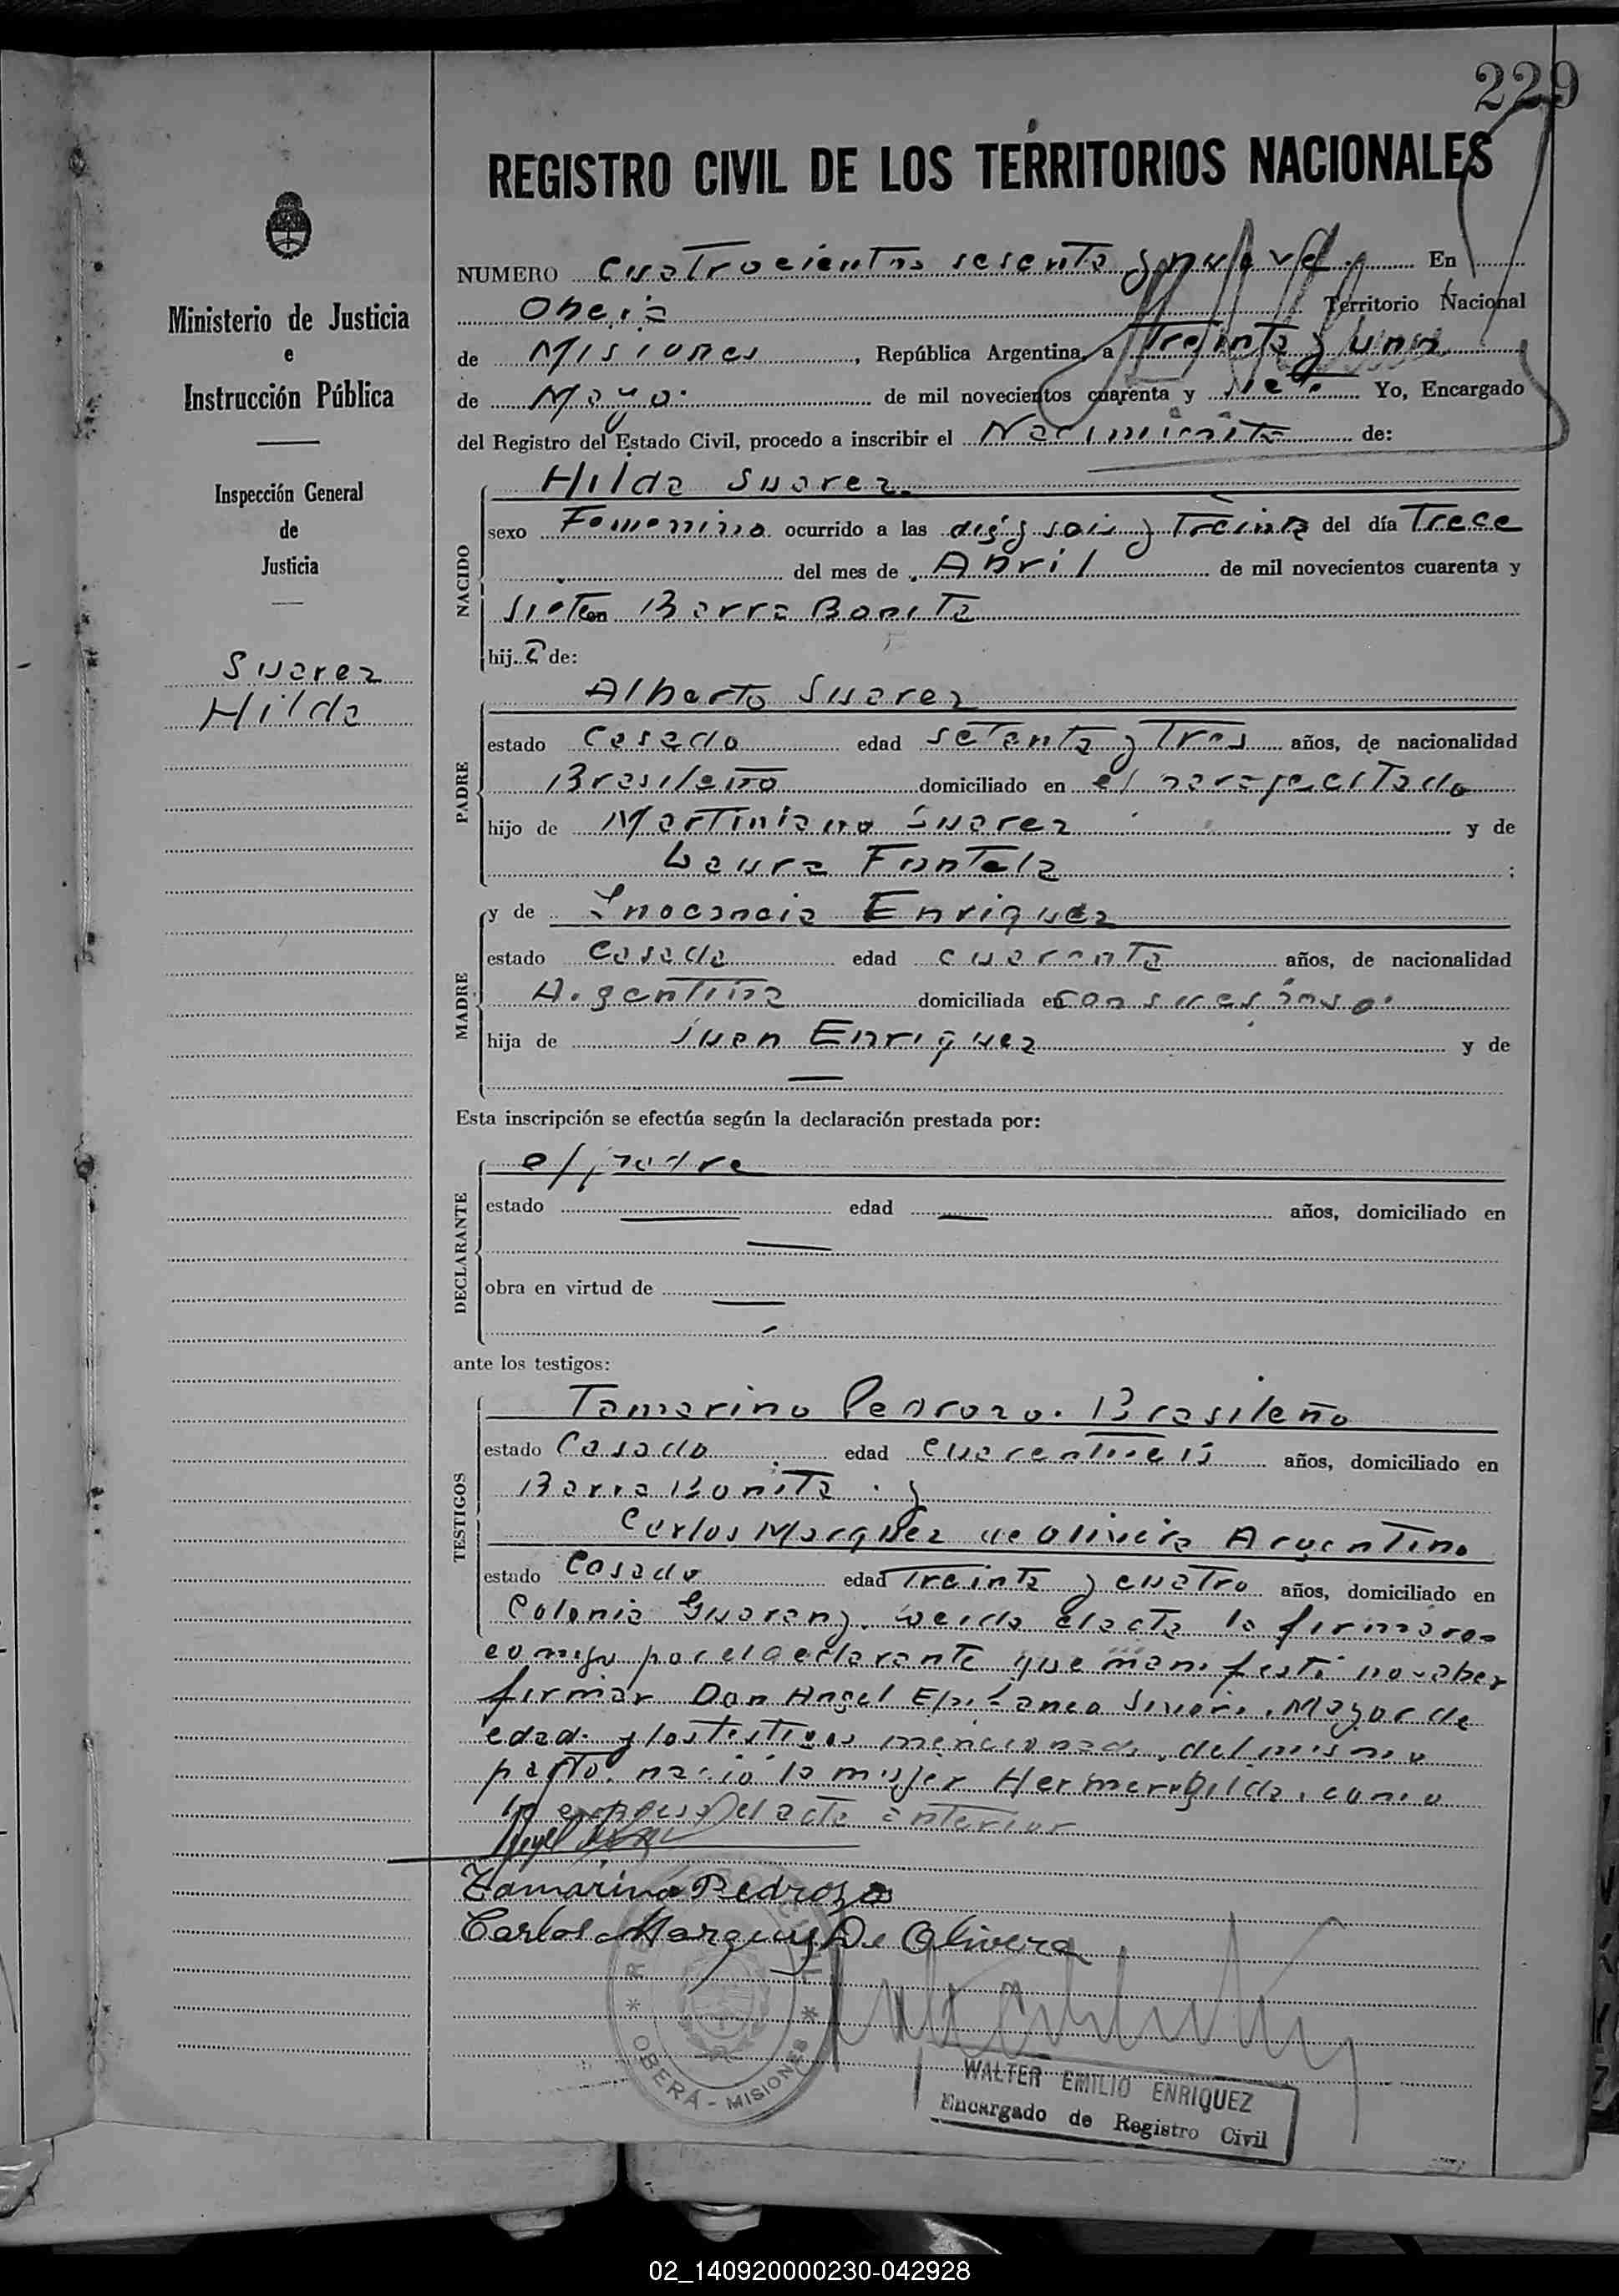 229
REGISTRO CIVIL DE LOS TERRITORIOS NACIONALES
Ministerio de Justicia
e
Instrucción Pública
Inspección General
de
Justicia
Suarez
Hilda
NUMERO Cuatrocientos sesenta y nueve. En
Oberá Territorio Nacional
de Misiones, República Argentina, a treinta y uno
de Mayo de mil novecientos cuarenta y siete Yo, Encargado
del Registro del Estado Civil, procedo a inscribir el Nacimiento de:
NACIDO
Hilda Suarez
sexo Femenino ocurrido a las y treinta del día Trece
del mes de Abril de mil novecientos cuarenta y
siete en Barra Bonita
hija de:
PADRE
Alberto Suarez
estado Casado edad setenta y tres años, de nacionalidad
Brasileño domiciliado en el paraje citado
hijo de Martiniano Suarez y de
Laura Fontela ;
MADRE
y de Inocencia Enriquez
estado Casada edad cuarenta años, de nacionalidad
Argentina domiciliada en con su esposo
hija de Juan Enriquez y de
Esta inscripción se efectúa según la declaración prestada por:
DECLARANTE
el padre
estado edad años, domiciliado en
obra en virtud de
ante los testigos:
TESTIGOS
Tamarino Pedrozo. Brasileño
estado Casado edad años, domiciliado en
Barra Bonita. y
Carlos Marquez de Olivera Argentino
estado Casado edad treinta y cuatro años, domiciliado en
Colonia Guarany. Leida el acta la firmaron
comigo por el declarante que manifestó no saber
firmar Don Angel Epifaneo Mayor de
edad. y los testigos mencionados, del mismo
parto nació la mujer Hermeregilda, como
lo expresa el acta anterior
Tamarino Pedrozo
Carlos Marques De Olivera
OBERÁ - MISIONES
WALTER EMILIO ENRIQUEZ
Encargado de Registro Civil
02_140920000230-042928